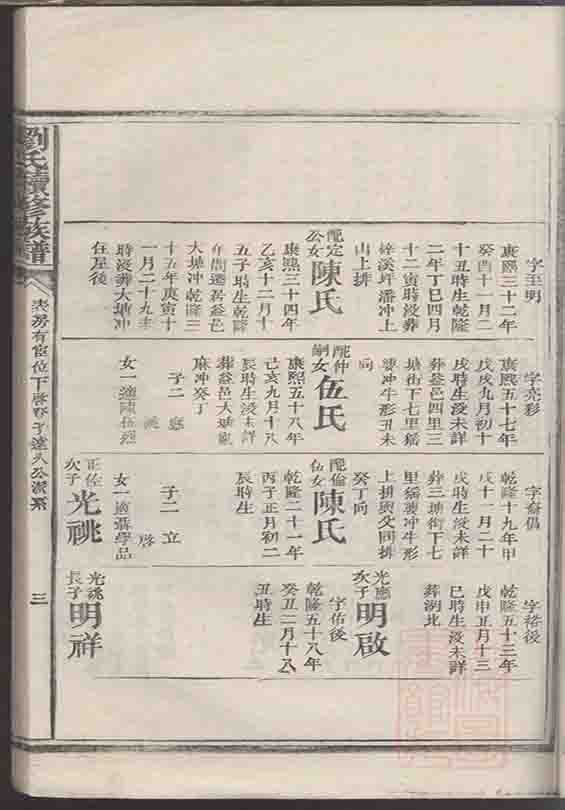 劉氏續修族譜
三
字至明
康熙三十二年
癸酉十一月二
十丑時生乾隆
二年丁巳四月
十二寅時沒葬
坪潘冲上
山上排
配定
公女
陳氏
康熙三十四年
乙亥十二月十
五子時生乾隆
年間遷居益邑
大塘冲乾隆三
十五年庚寅十
一月二十九
時沒葬大塘冲
住屋後
字亮彩
康熙五十七年
戊戌九月初十
戌時生沒未詳
葬益邑四里三
塘街下七里
冲牛形丑未
向
配仲
嗣女
伍氏
康熙五十八年
己亥九月十八
辰時生沒未詳
葬益邑大塘
麻冲癸丁
子二 應
祧
女一適陳伍烈
字喬俱
乾隆十九年甲
戌十一月二十
戌時生沒未詳
葬三塘街下七
里冲牛形
上排與父同排
癸丁向
配倫
仙女
陳氏
乾隆二十一年
丙子正月初二
辰時生
子二 立
啓
女一適學品
正佐
次子
光祧
字裕後
乾隆五十三年
戊申正月十三
巳時生沒未詳
葬湖北
光應
次子
明啟
字佑後
乾隆五十八年
癸丑二月十八
丑時生
光祧
長子
明祥